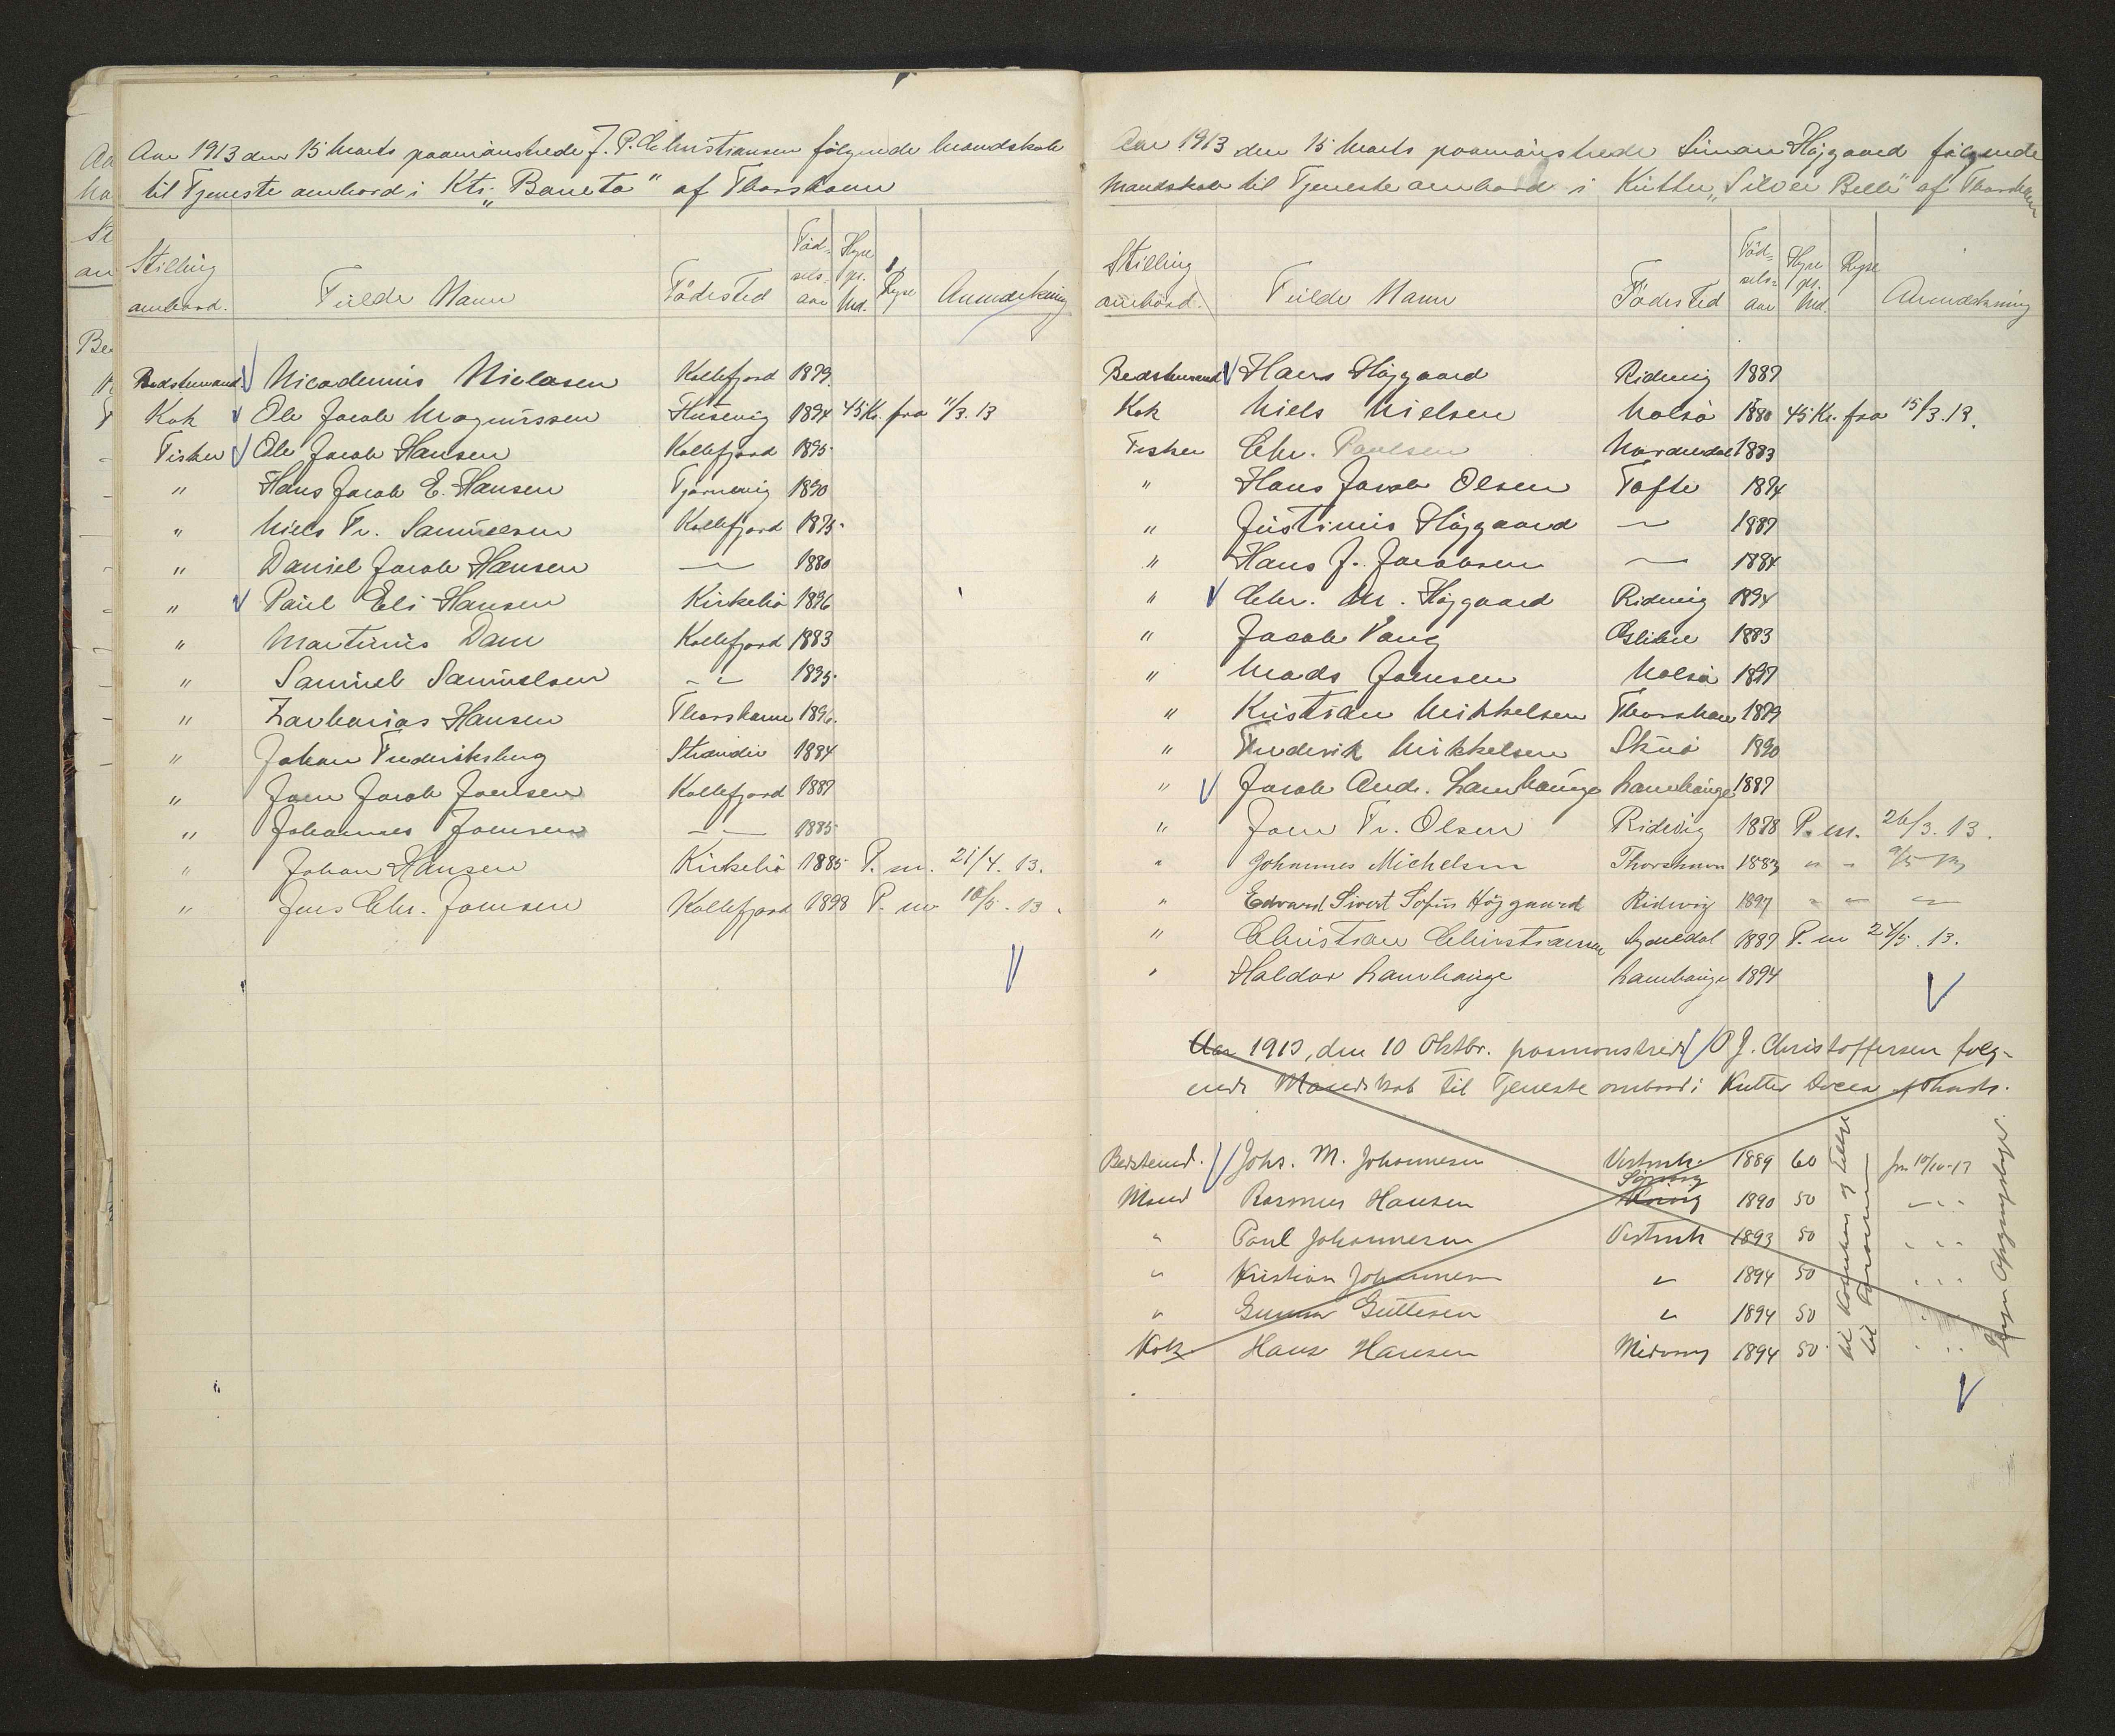 Aar 1913 den 15 Marts paamönstrede J. P. Christiansen følgende Mandskab
til Tjeneste ombord i Ktr. "Baneta" af Thorshavn
Stilling ombord. Fulde Navn Födested Födselsaar Hyre pr. Md. Rejse Anmærkning
Bedstemand Nicodemus Niclasen Kollefjord 1879
Kok Ole Jacob Magnussen Husevig 1894 45 Kr. fra 11/3. 13
Fisker Ole Jacob Hansen Kollefjord 1895
" Hans Jacob E. Hansen Tjörnevig 1890
" Niels Fr. Samuelsen Kollefjord 1875
" Daniel Jacob Hansen — 1880
" Paul Eli Hansen Kirkebö 1896
" Martinus Dam Kollefjord 1883
" Samuel Samuelsen — 1895
" Zacharias Hansen Thorshavn 1896
" Johan Frederiksberg Strender 1894
" Joen Jacob Joensen Kollefjord 1887
" Johannes Joensen — 1885
" Johan Hansen Kirkebö 1885 P. m. 21/4. 13.
" Jens Chr. Joensen Kollefjord 1898 P. m 10/5. 13.
Aar 1913 den 15 Marts paamönstrede Simon Höjgaard følgende
Mandskab til Tjeneste ombord i Kutter "Silver Belle" af Thorshavn
Stilling ombord. Fulde Navn Födested Födselsaar Hyre pr. Md. Rejse Anmærkning
Bedstemand Hans Höjgaard Ridevig 1887
Kok Niels Nielsen Nolsö 1880 45 Kr. fra 15/3. 13.
Fisker Chr. Poulsen Norderdal 1883
" Hans Jacob Olsen Tofte 1894
" Justinus Höjgaard — 1887
" Hans J. Jacobsen — 1884
" Chr. M. Höjgaard Ridevig 1894
" Jacob Vang 1883
" Mads Joensen Nolsö 1897
" Kristian Mikkelsen Thorshavn 1879
" Frederik Mikkelsen Skuö 1890
" Jacob Andr. Lamhauge Lamhauge 1887
" Joen Fr. Olsen Ridevig 1878 P. m. 26/3. 13.
" Johannes Michelsen Thorshavn 1883 " "
" Edvard Sivert Sofus Höjgaard Ridevig 1897 " " "
" Christian Christiansen Synedal 1887 P. m 24/5. 13.
" Haldor Lamhauge Lamhauge 1894
Aar 1913, den 10 Oktbr. paamonstrede P J. Christoffersen følg-
ende Mandskab til Tjeneste ombord i Kutter af Thorsh.
Bedstemd. Johs. M. Johannesen Vestmh. 1889 60 fra 10/10-13
Mand Rasmus Hansen Sörvaag 1890 50 " "
" Poul Johannesen Vestmh 1893 50 " "
" Kristian Johannesen " 1894 50 " "
" Gunnar Guttesen " 1894 50 "
Kok Hans Hansen Midvaag 1894 50 " "